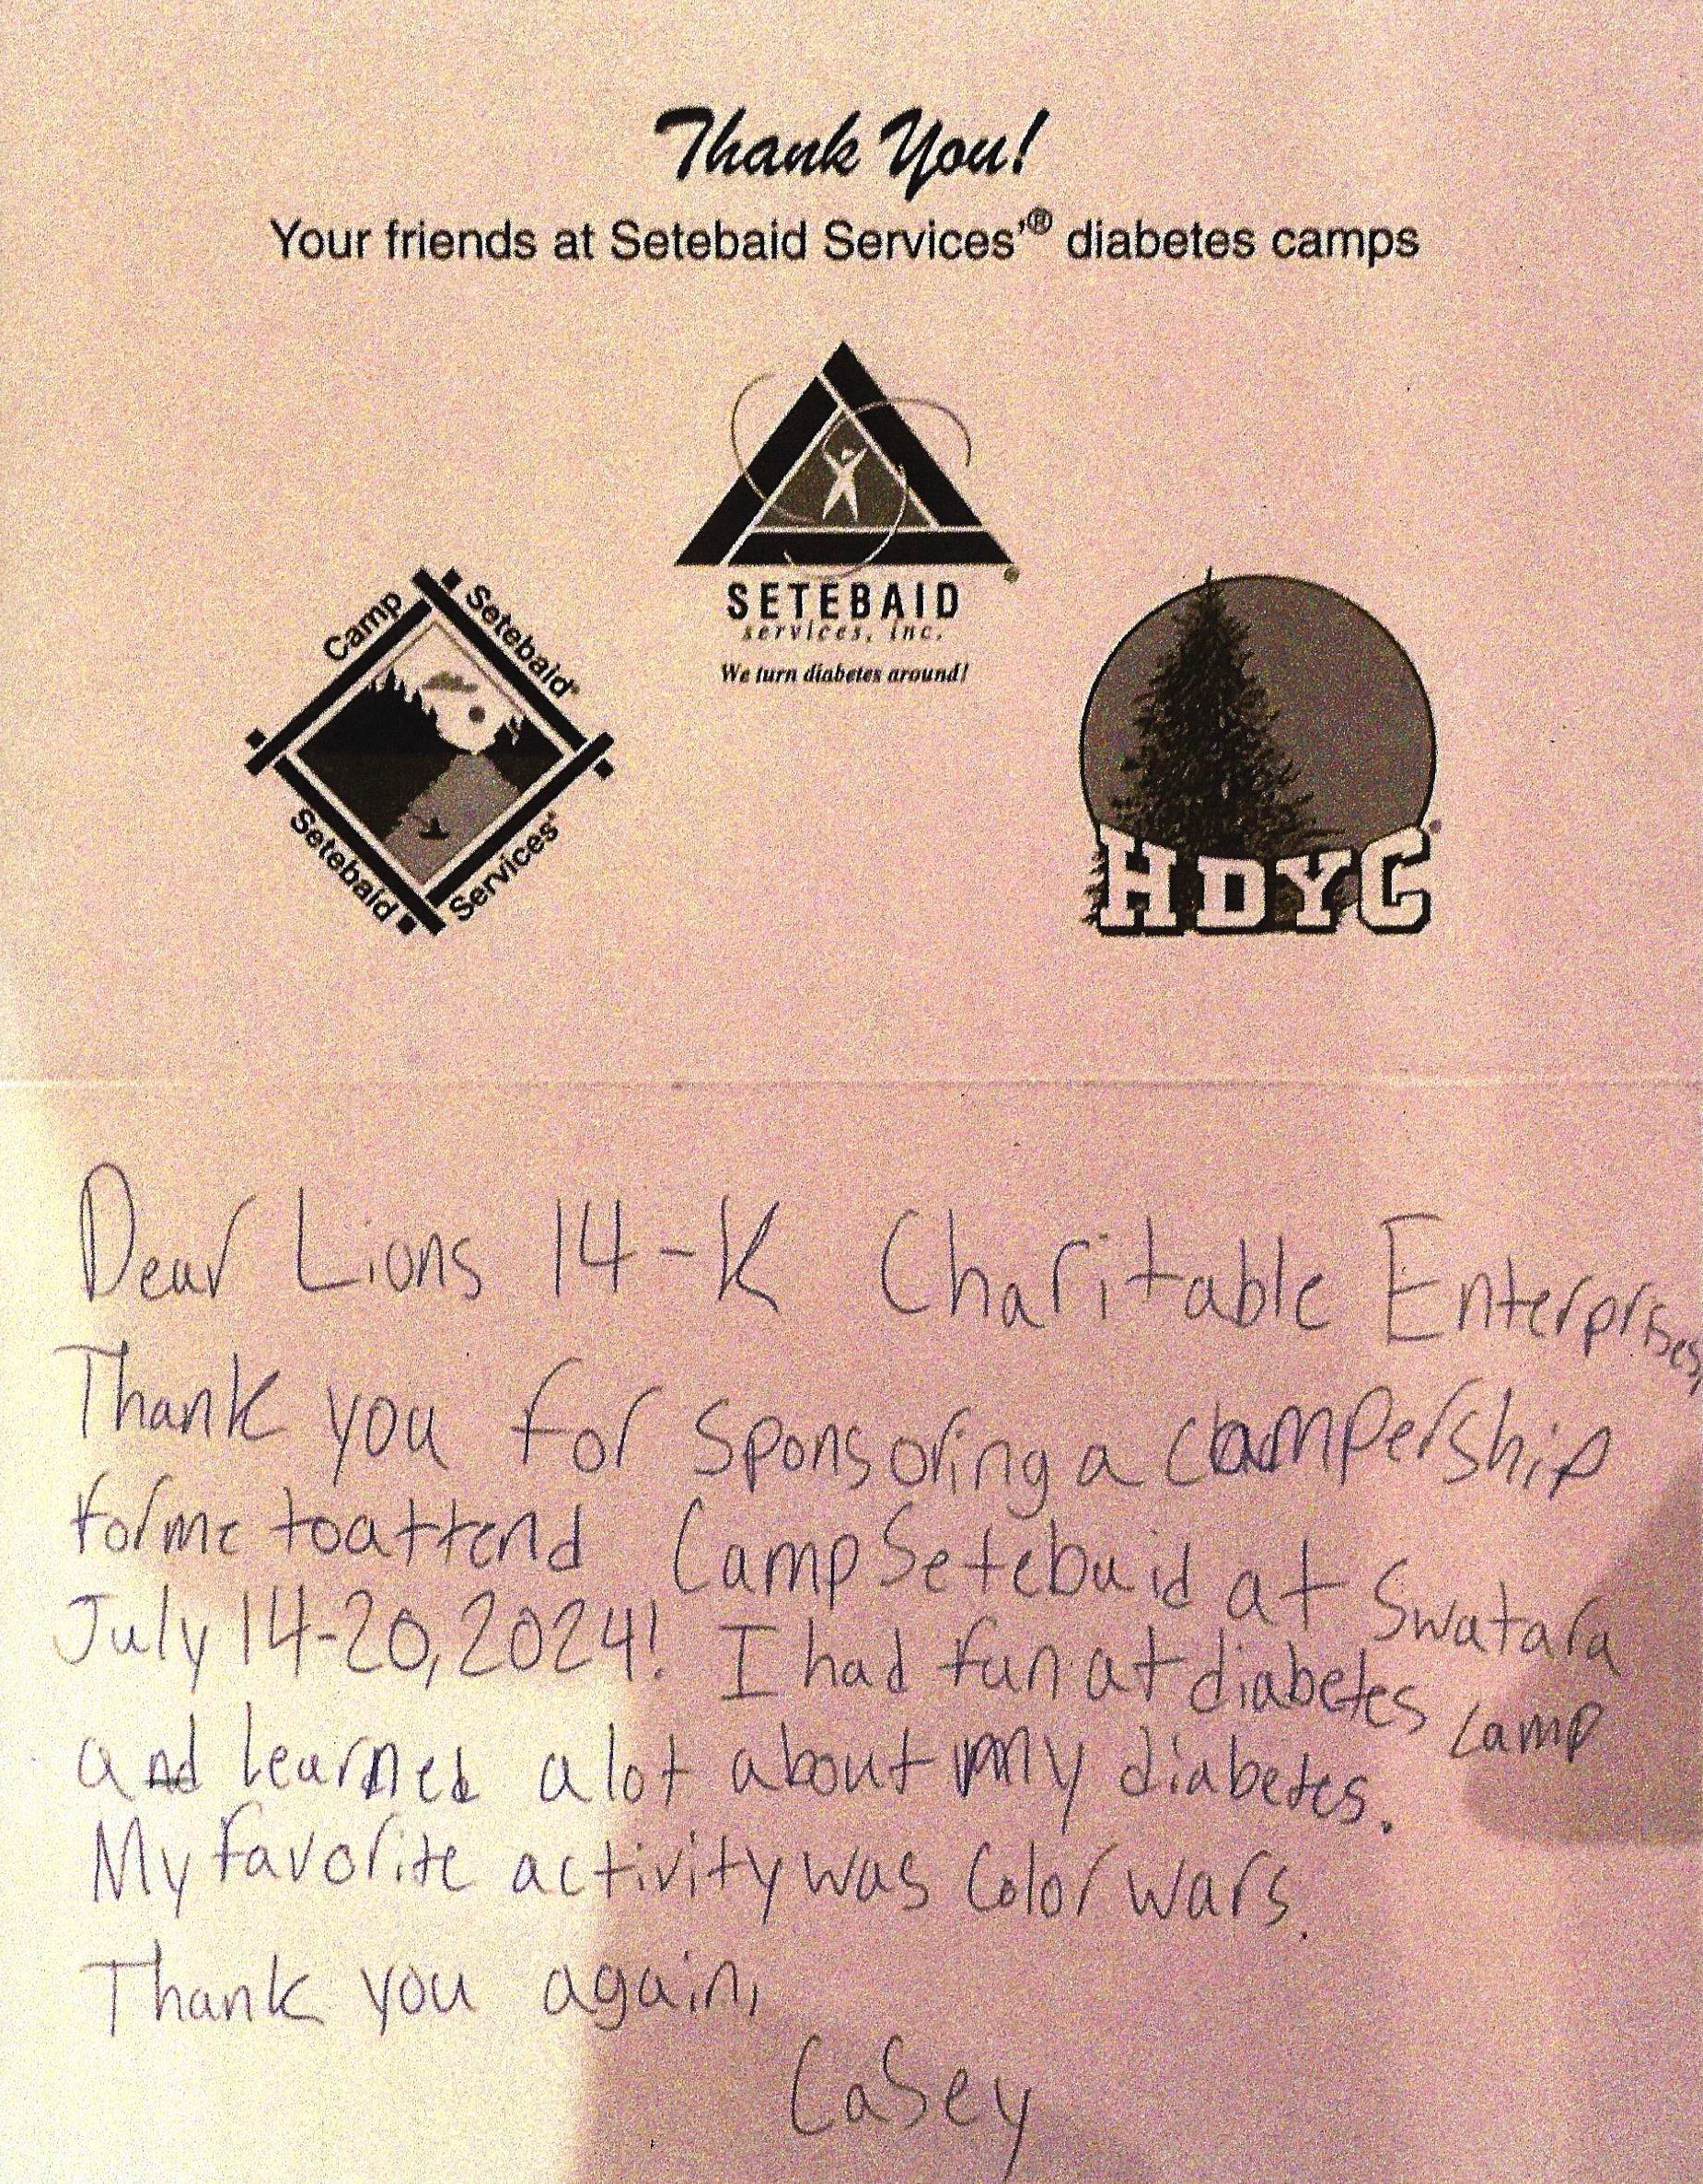 Thank You!
Your friends at Setebaid Services'® diabetes camps
SETEBAID
services, inc.
We turn diabetes around!
Camp Setebaid®
Setebaid Services'
HDYC
Dear Lions 14-K Charitable Enterprises,
Thank you for sponsoring a campership
for me to attend Camp Setebaid at Swatara
July 14-20, 2024! I had fun at diabetes camp
and learned a lot about my diabetes.
My favorite activity was Color wars.
Thank you again,
Casey